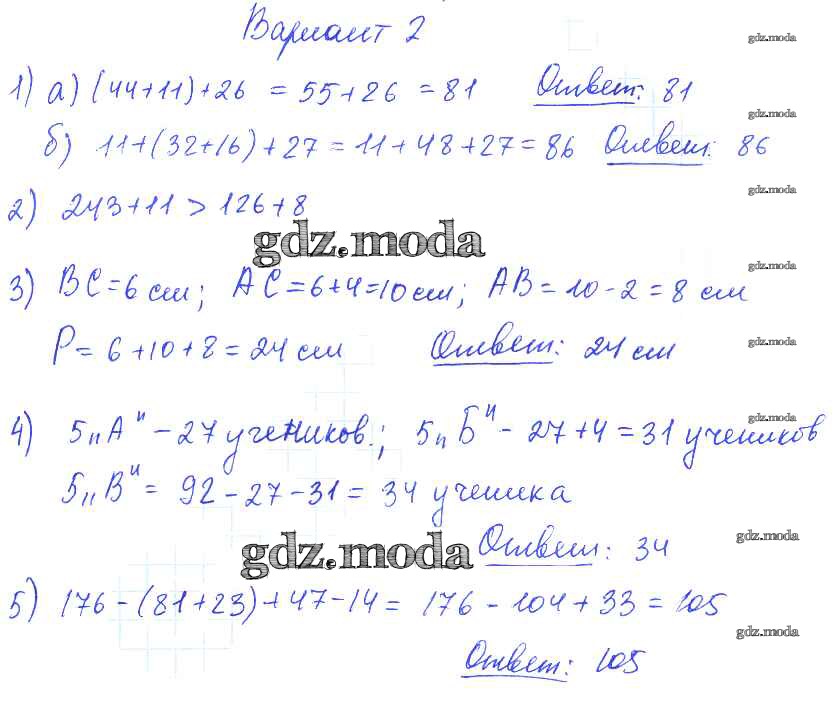 Вариант 2
gdz.moda
1) а) (44+11)+26 = 55+26 = 81 Ответ: 81
gdz.moda
б) 11+(32+16)+27=11+48+27=86 Ответ: 86
gdz.moda
2) 243+11 > 126+8
gdz.moda
gdz.moda
3) BC=6 см; AC=6+4=10 см; AB=10-2=8 см
P=6+10+8=24 см Ответ: 24 см
gdz.moda
gdz.moda
4) 5 "А" - 27 учеников.; 5 "Б" - 27+4=31 учеников
5 "В" = 92-27-31=34 ученика
gdz.moda
gdz.moda
Ответ: 34
5) 176-(81+23)+47-14= 176-104+33=105
gdz.moda
Ответ: 105